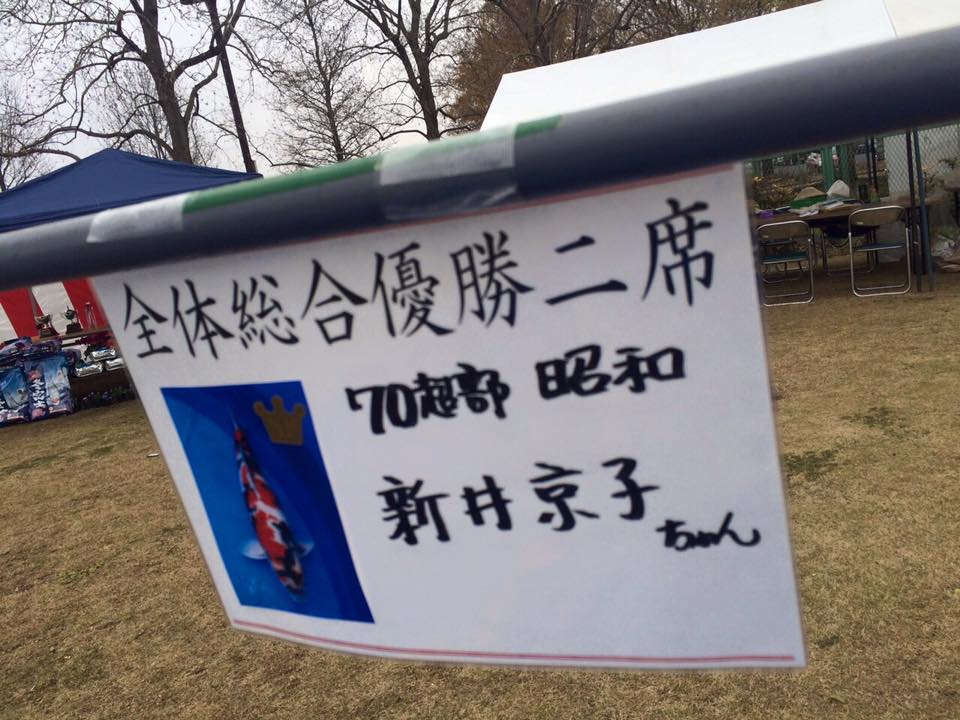 全体総合優勝二席
70超部 昭和
新井京子ちゃん